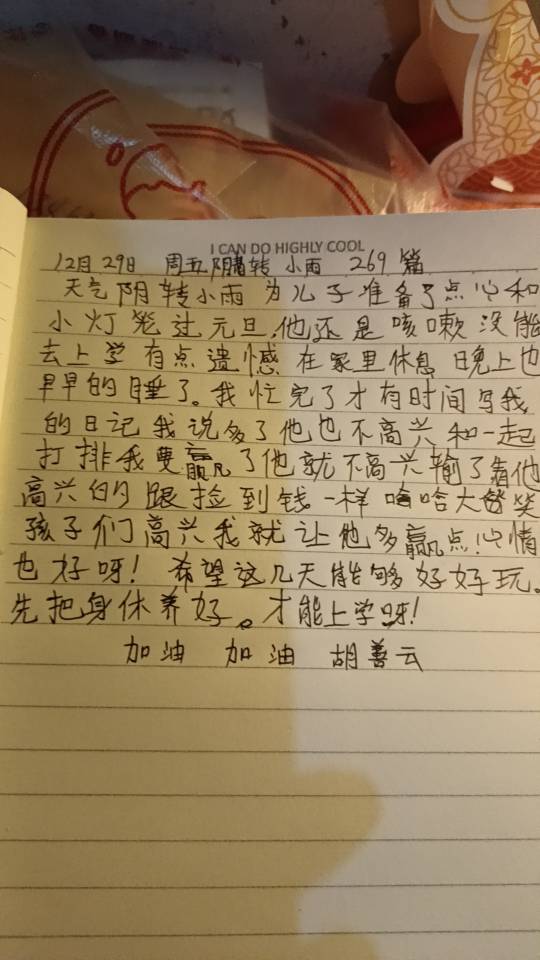 I CAN DO HIGHLY COOL
12月29日 周五 阴转 小雨 269篇
天气阴转小雨 为儿子准备了点心和
小灯笼过元旦,他还是咳嗽没能
去上学 有点遗憾 在家里休息 晚上也
早早的睡了。我忙完了才有时间写我
的日记 我说多了他也不高兴 和一起
打排 我要赢了他就不高兴 输了看他
高兴的跟捡到钱一样 嗨哈大笑
孩子们高兴我就让他多赢点!心情
也好呀! 希望这几天能够好好玩。
先把身休养好。才能上学呀!
加油 加油 胡善云